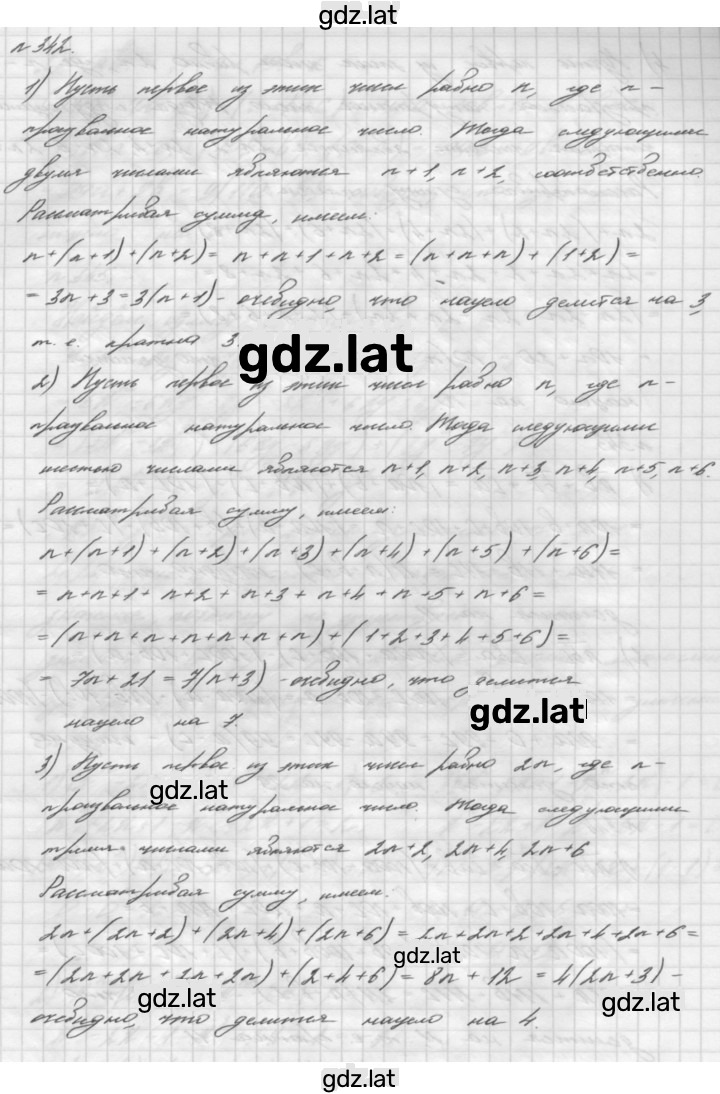 gdz.lat
n 342.
1) Пусть первое из этих чисел равно n, где n -
произвольное натуральное число. Тогда следующими
двумя числами являются n+1, n+2, соответственно.
Рассматривая сумму, имеем:
n+(n+1)+(n+2)= n+n+1+n+2=(n+n+n)+(1+2)=
= 3n+3=3(n+1)- очевидно, что нацело делится на 3,
т. е. кратна 3.
gdz.lat
2) Пусть первое из этих чисел равно n, где n-
произвольное натуральное число. Тогда следующими
шестью числами являются n+1, n+2, n+3, n+4, n+5, n+6.
Рассматривая сумму, имеем:
n+(n+1)+(n+2)+(n+3)+(n+4)+(n+5)+(n+6)=
= n+n+1+n+2+n+3+n+4+n+5+n+6=
=(n+n+n+n+n+n+n)+(1+2+3+4+5+6)=
= 7n+21=7(n+3) - очевидно, что делится
gdz.lat
нацело на 7.
3) Пусть первое из этих чисел равно 2n, где n-
gdz.lat
произвольное натуральное число. Тогда следующими
тремя числами являются 2n+2, 2n+4, 2n+6
Рассматривая сумму, имеем:
2n+(2n+2)+(2n+4)+(2n+6)= 2n+2n+2+2n+4+2n+6=
gdz.lat
=(2n+2n+2n+2n)+(2+4+6)= 8n+12 = 4(2n+3)-
gdz.lat
gdz.lat
очевидно, что делится нацело на 4.
gdz.lat